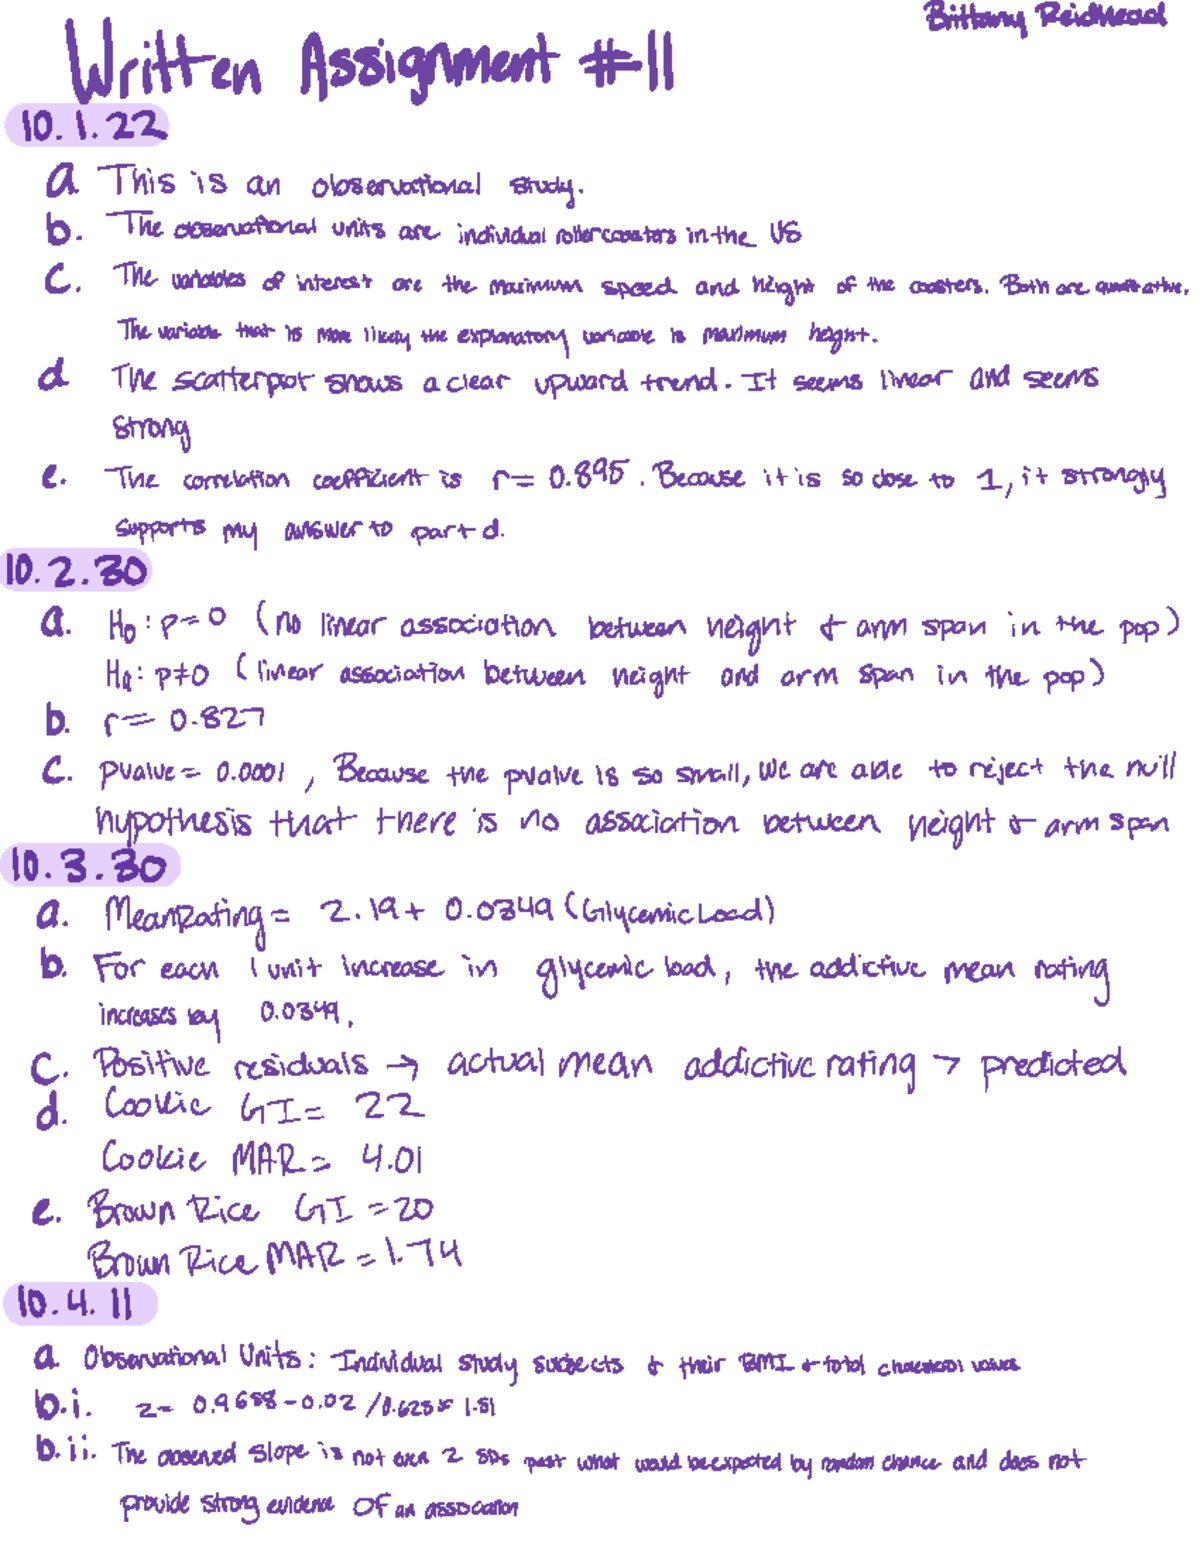 Brittany Reidhead
Written Assignment #11
10.1.22
a This is an observational study.
b. The observational units are individual rollercoasters in the US
c. The variables of interest are the maximum speed and height of the coasters. Both are quantitative.
The variable that is more likely the explanatory variable is maximum height.
d The scatterplot shows a clear upward trend. It seems linear and seems
strong
e. The correlation coefficient is r= 0.895. Because it is so close to 1, it strongly
supports my answer to part d.
10.2.30
a. H0: p=0 (no linear association between height & arm span in the pop)
Ha: p≠0 (linear association between height and arm span in the pop)
b. r= 0.827
c. pvalue= 0.0001, Because the pvalue is so small, we are able to reject the null
hypothesis that there is no association between height & arm span
10.3.30
a. MeanRating= 2.19+ 0.0349 (GlycemicLoad)
b. For each 1 unit increase in glycemic load, the addictive mean rating
increases by 0.0349.
c. Positive residuals → actual mean addictive rating > predicted
d. Cookie GI= 22
Cookie MAR= 4.01
e. Brown Rice GI =20
Brown Rice MAR =1.74
10.4.11
a Observational Units: Individual study subjects & their BMI & total cholesterol values
b.i. z= 0.9688-0.02 /0.625= 1.51
b.ii. The observed slope is not even 2 SDs past what would be expected by random chance and does not
provide strong evidence of an association